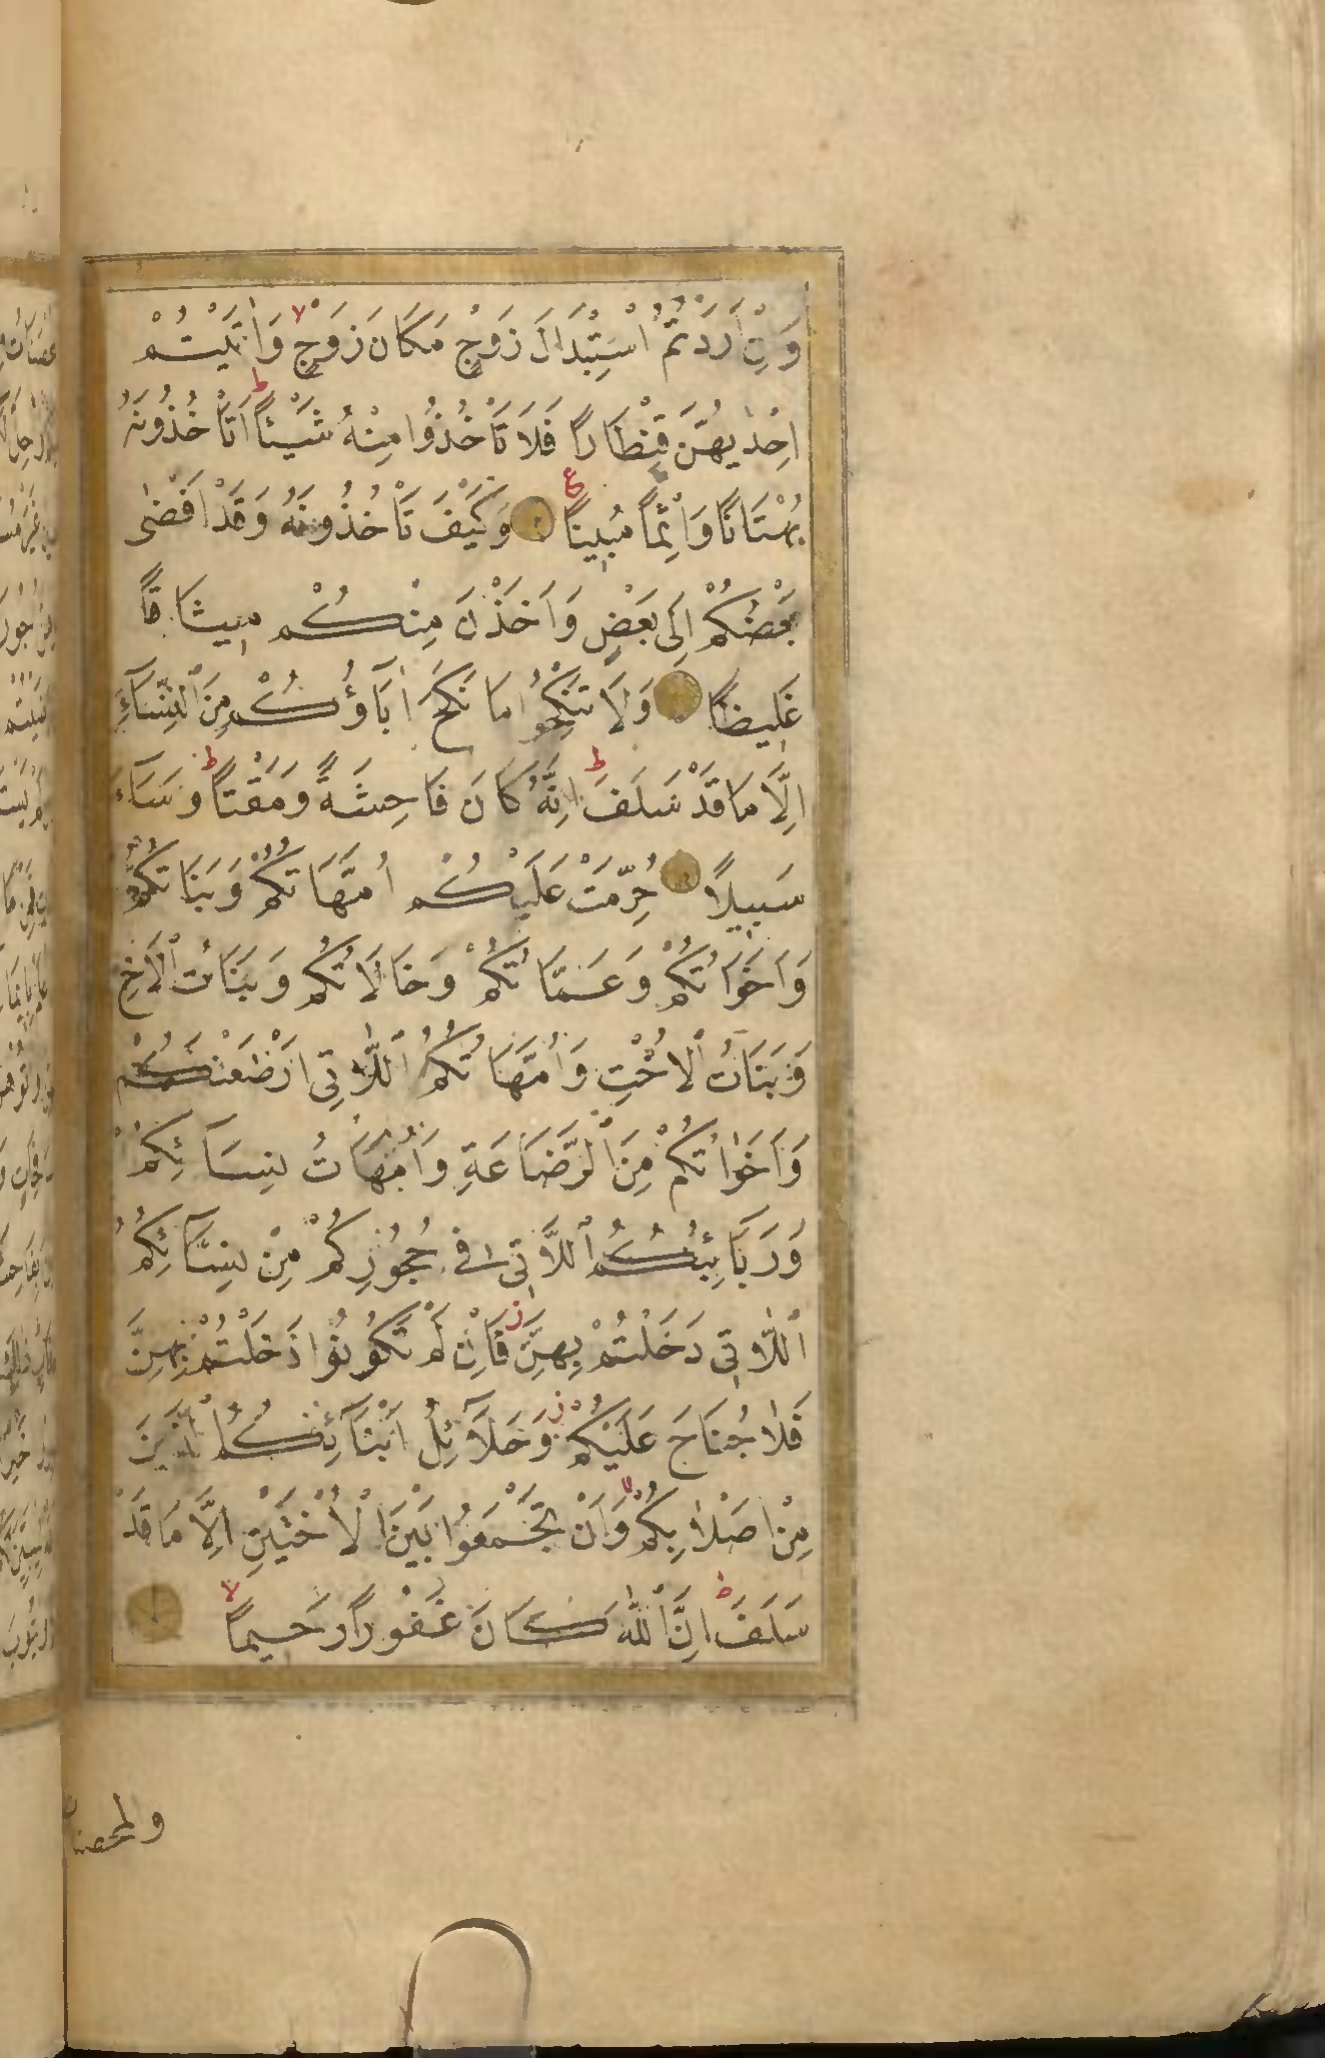 وَاِنْ اَرَدْتُمُ اسْتِبْدَالَ زَوْجٍ مَكَانَ زَوْجٍ وَاٰتَيْتُمْ
اِحْدٰيهُنَّ قِنْطَارًا فَلَا تَأْخُذُوا مِنْهُ شَيْئًا اَتَأْخُذُونَهُ
بُهْتَانًا وَاِثْمًا مُبِينًا وَكَيْفَ تَأْخُذُونَهُ وَقَدْ اَفْضٰى
بَعْضُكُمْ اِلَى بَعْضٍ وَاَخَذْنَ مِنْكُمْ مِيثَاقًا
غَلِيظًا وَلَا تَنْكِحُوا مَا نَكَحَ اٰبَاؤُكُمْ مِنَ النِّسَآءِ
اِلَّا مَا قَدْ سَلَفَ اِنَّهُ كَانَ فَاحِشَةً وَمَقْتًا وَسَاءَ
سَبِيلًا حُرِّمَتْ عَلَيْكُمْ اُمَّهَاتُكُمْ وَبَنَاتُكُمْ
وَاَخَوَاتُكُمْ وَعَمَّاتُكُمْ وَخَالَاتُكُمْ وَبَنَاتُ الْاَخِ
وَبَنَاتُ الْاُخْتِ وَاُمَّهَاتُكُمُ اللّٰاتِى اَرْضَعْنَكُمْ
وَاَخَوٰاتُكُمْ مِنَ الرَّضَاعَةِ وَاُمَّهَاتُ نِسَآئِكُمْ
وَرَبَآئِبُكُمُ اللَّاتِى فِى حُجُورِكُمْ مِنْ نِسَآئِكُمُ
اللّٰاتِى دَخَلْتُمْ بِهِنَّ فَاِنْ لَمْ تَكُونُوا دَخَلْتُمْ بِهِنَّ
فَلَا جُنَاحَ عَلَيْكُمْ وَحَلَآئِلُ اَبْنَآئِكُمُ الَّذِينَ
مِنْ اَصْلَابِكُمْ وَاَنْ تَجْمَعُوا بَيْنَ الْاُخْتَيْنِ اِلَّا مَا قَدْ
سَلَفَ اِنَّ اللّٰهَ كَانَ غَفُورًا رَحِيمًا
ولمحصنات